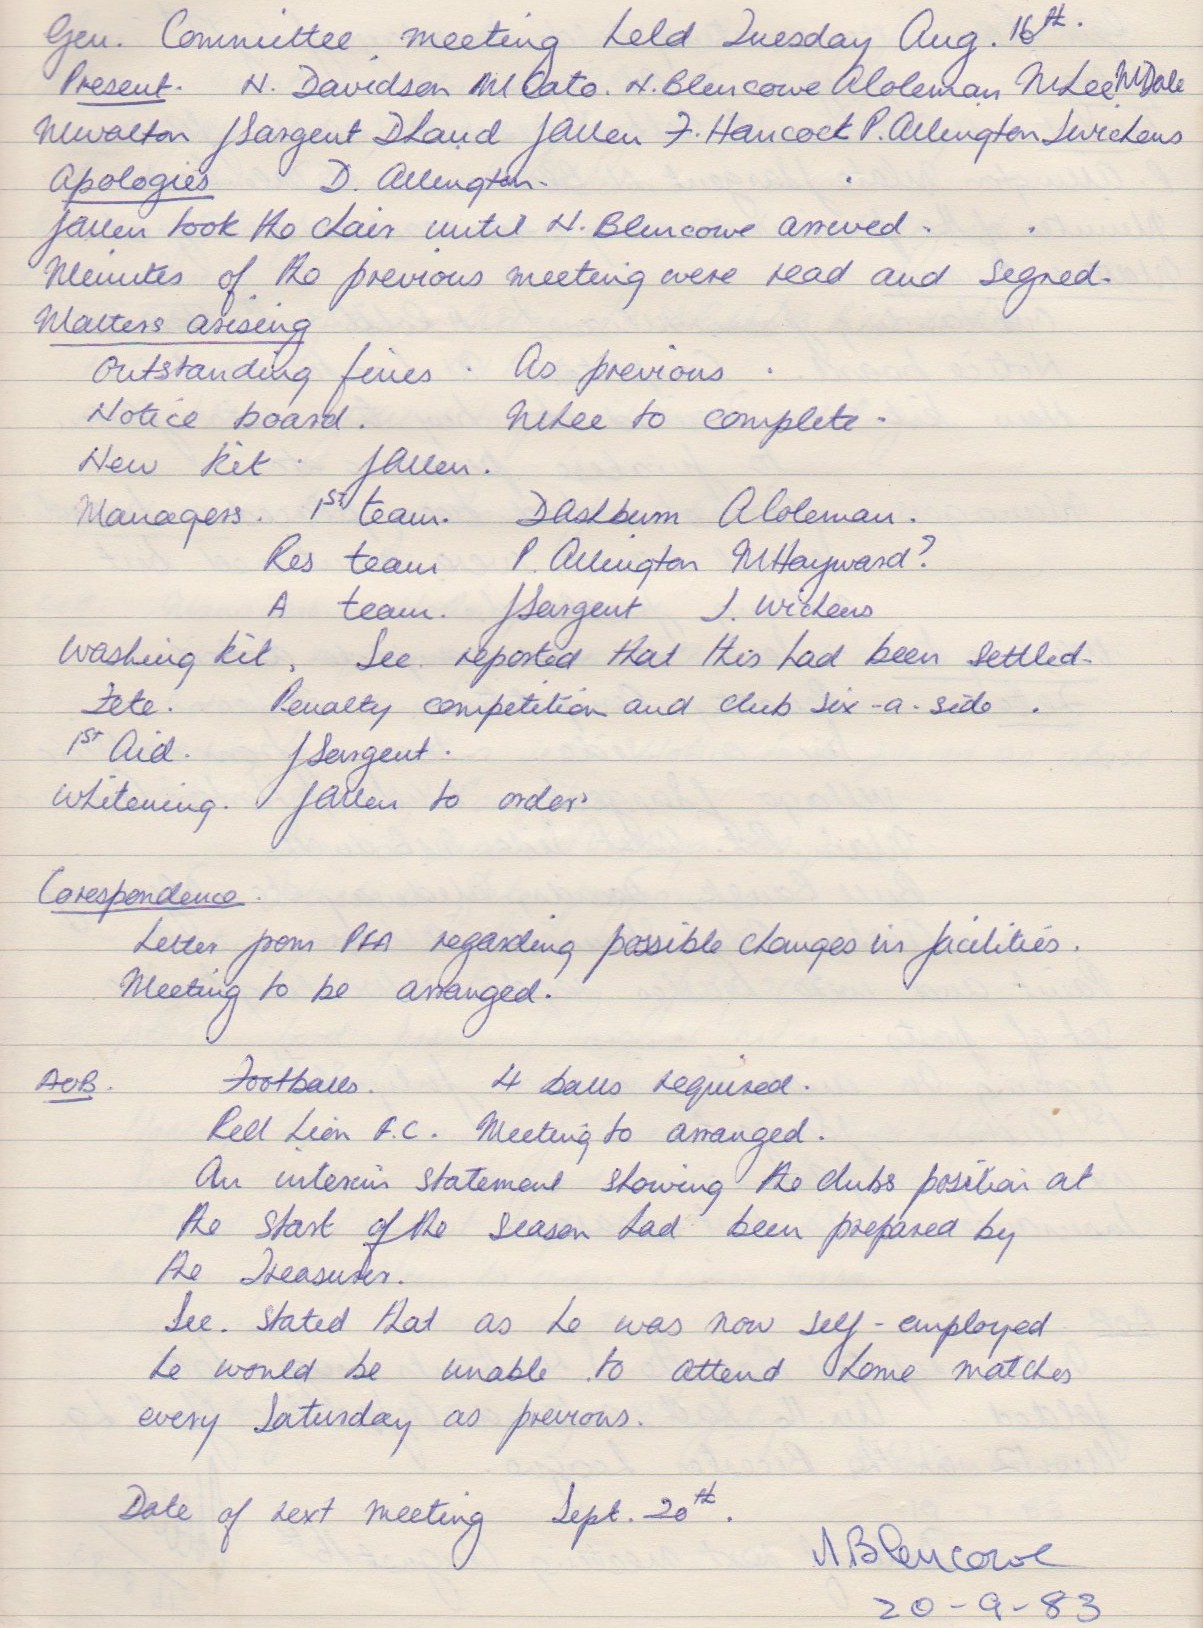 Gen. Committee meeting held Tuesday Aug. 16th.
Present. N. Davidson M Cato. N. Blencowe A Coleman M Lee M Dale
M Walton J Sargent D Laud J Allen F. Hancock P. Allington J Wickens
Apologies D. Allington.
J Allen took the chair until N. Blencowe arrived.
Minutes of the previous meeting were read and signed.
Matters arising
Outstanding fines. As previous.
Notice board. M Lee to complete.
New kit. J Allen.
Managers. 1st team. D Ashburn A Coleman.
Res team P. Allington M Hayward?
A team. J Sargent J. Wickens
Washing kit. Sec. reported that this had been settled.
Fete. Penalty competition and club six-a-side.
1st Aid. J Sargent.
Whitening. J Allen to order.
Corespondence.
Letter from PFA regarding possible changes in facilities.
Meeting to be arranged.
AOB. Footballs. 4 balls required.
Red Lion F.C. Meeting to arranged.
An interim statement showing the clubs position at
the start of the season had been prepared by
the Treasurer.
Sec. stated that as he was now self-employed
he would be unable to attend home matches
every Saturday as previous.
Date of next meeting Sept. 20th.
N Blencowe
20-9-83